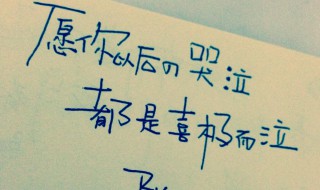 愿你以后の哭泣
都是喜极而泣
By